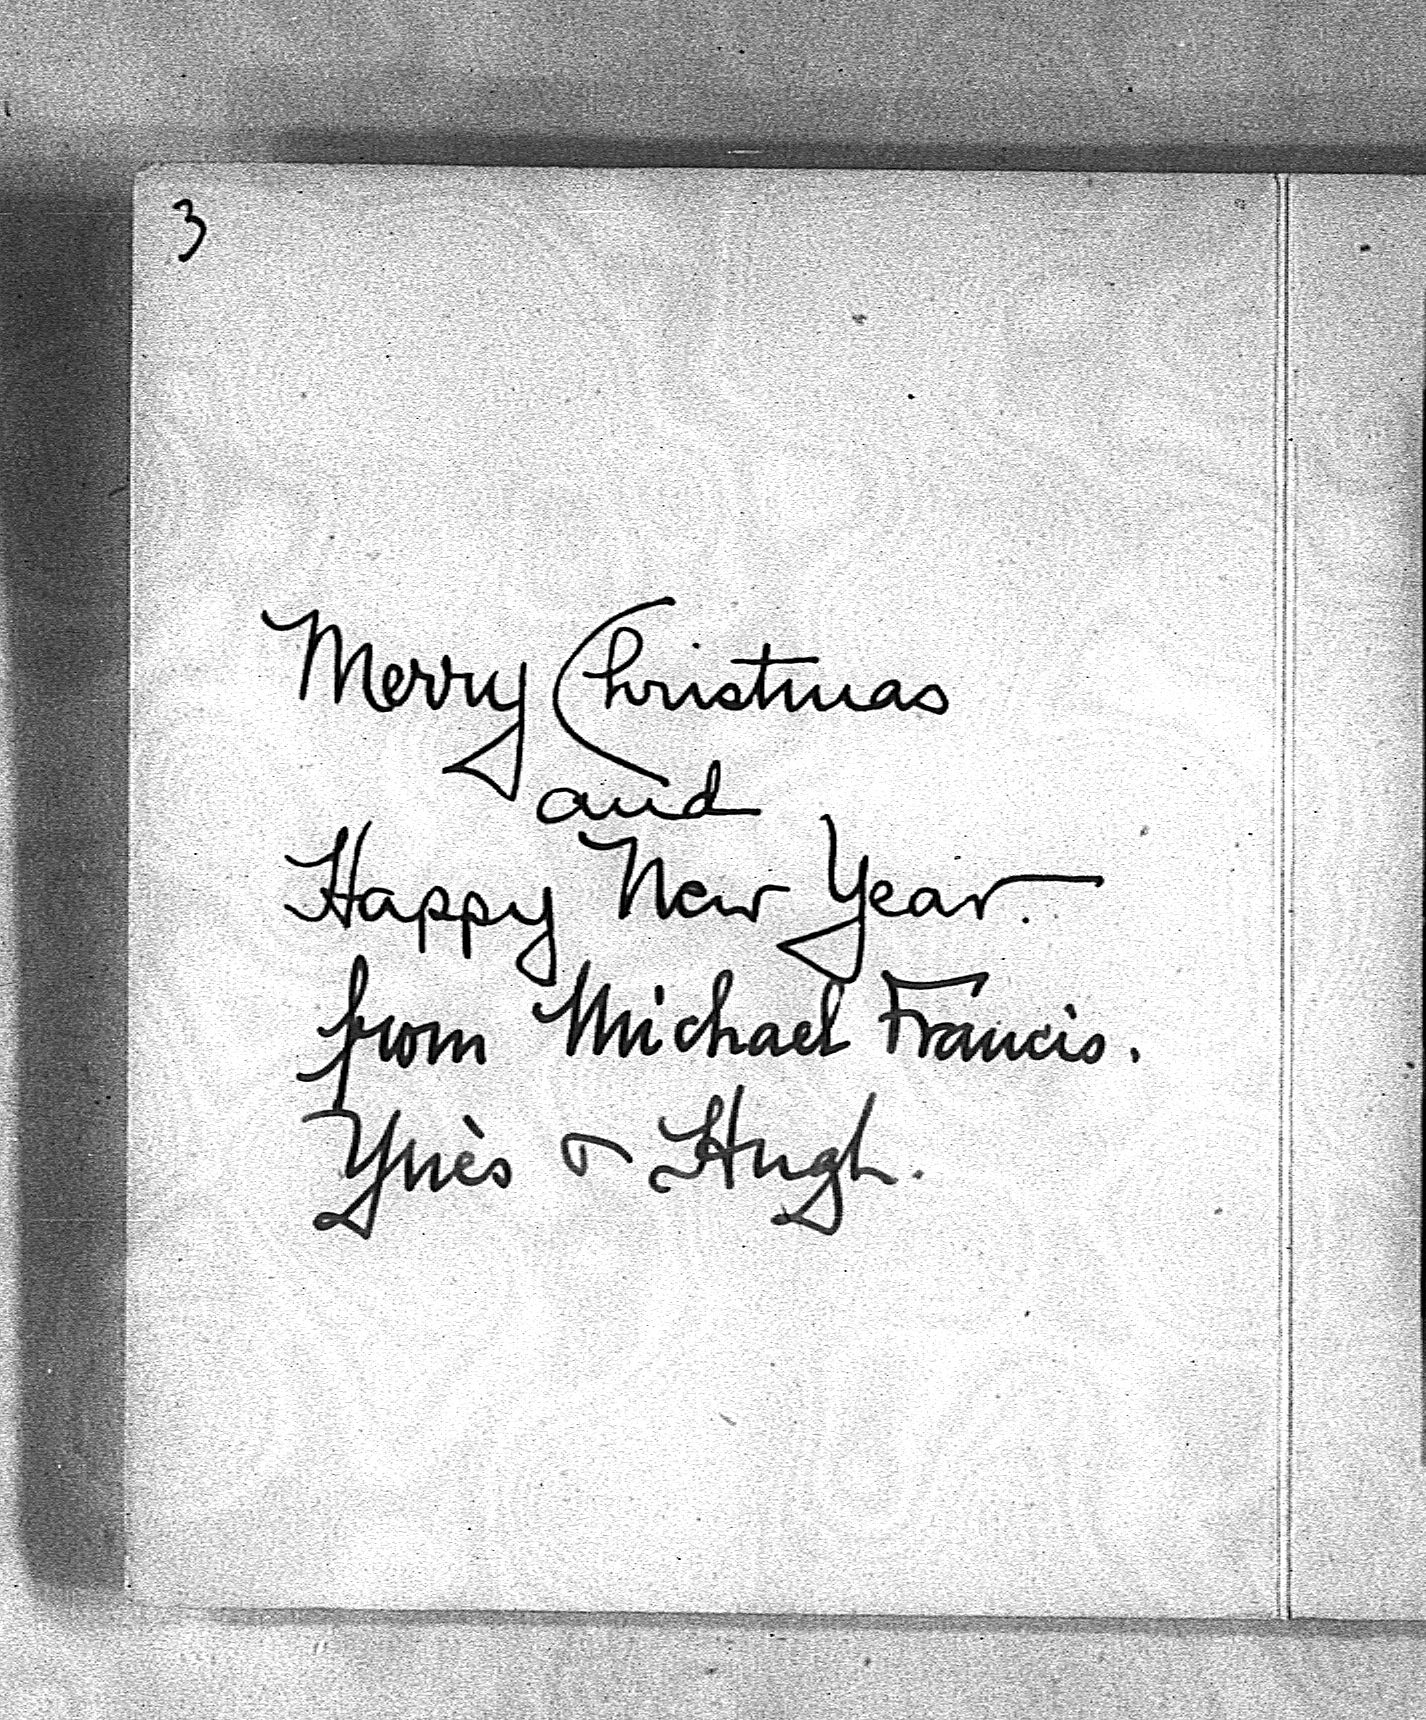 3
Merry Christmas
and
Happy New Year.
from Michael Francis.
Ynès & Hugh.